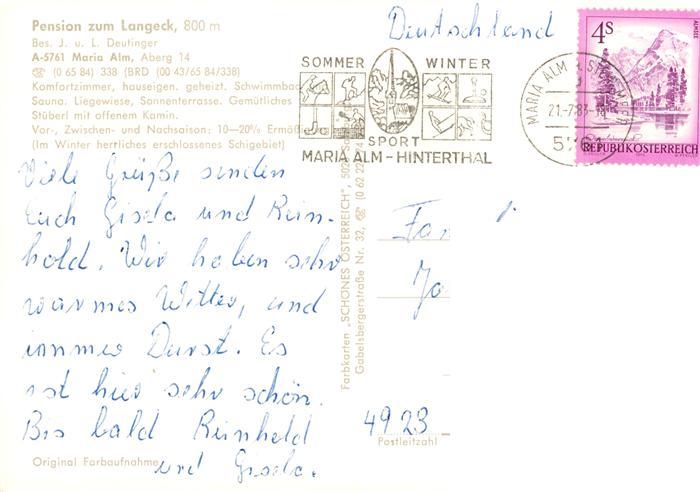 Pension zum Langeck, 800 m
Bes. J. u. L. Deutinger
A-5761 Maria Alm, Aberg 14
☎ (0 65 84) 338 (BRD (00 43/65 84/338)
Komfortzimmer, hauseigen. geheizt. Schwimmbad
Sauna. Liegewiese, Sonnenterrasse. Gemütliches
Stüberl mit offenem Kamin.
Vor-, Zwischen- und Nachsaison: 10—20% Ermäß
(Im Winter herrliches erschlossenes Schigebiet)
Viele Grüße senden
Euch Gisela und Rein-
hold. Wir haben sehr
warmes Wetter, und
immer Durst. Es
ist hier sehr schön.
Bis bald Reinhold
und Gisela.
Original Farbaufnahme
Farbkarten „SCHÖNES ÖSTERREICH",
Gabelsbergerstraße Nr. 32, ☎
Deutschland
SOMMER WINTER
SPORT
MARIA ALM - HINTERTHAL
MARIA ALM
21.-7.83
4S
ALMSEE
REPUBLIK ÖSTERREICH
Fam
4923
Postleitzahl